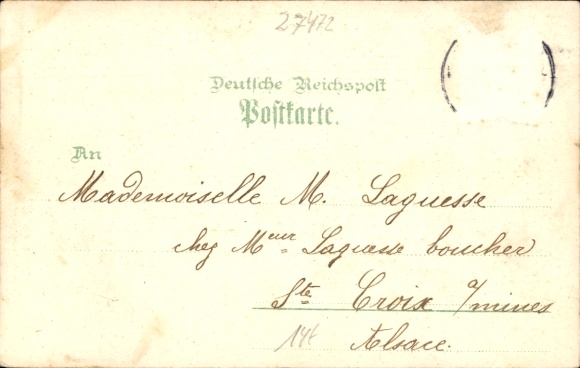 27472
Deutsche Reichspost
Postkarte.
An
Mademoiselle M. Laguesse
chez Meur Laguesse boucher
Ste Croix s/mines
Alsace.